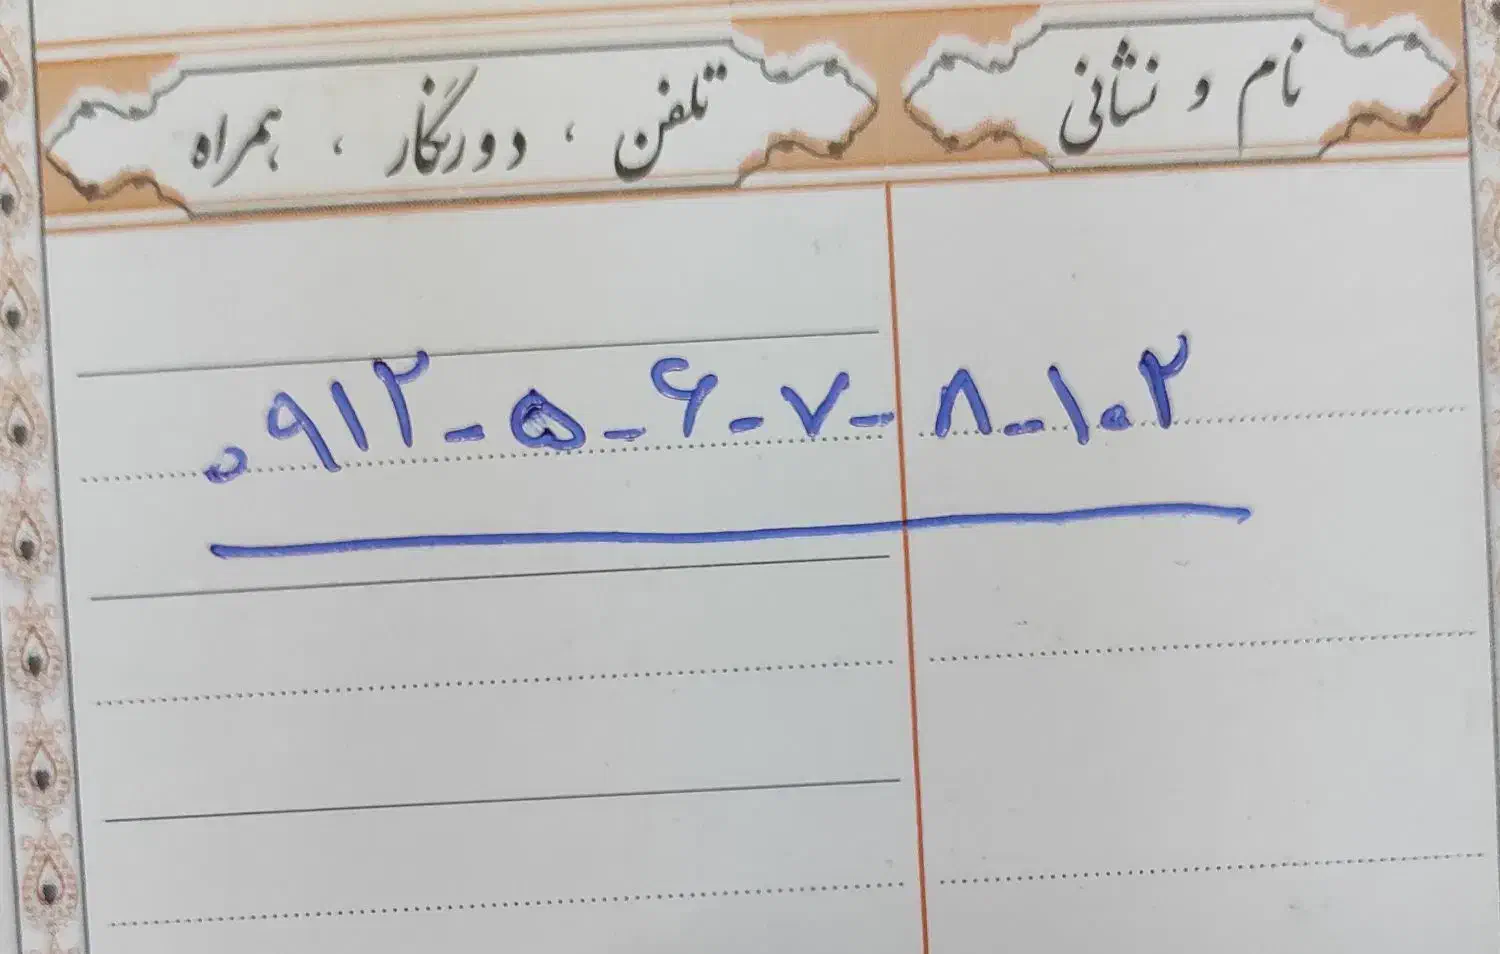 نام و نشانی
تلفن ، دورنگار ، همراه
۰۹۱۲-۵-۶-۷-۸-۱۰۲